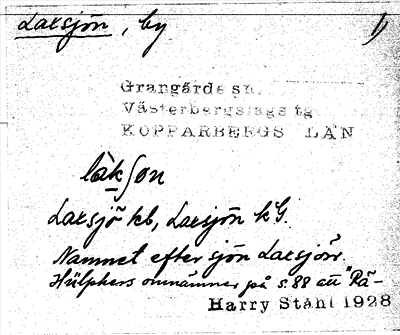 Laxsjön, by 1)
Grangärde sn.
Västerbergslags tg
KOPPARBERGS LÄN
làkʃon
Laxsjö kb, Laxsjön kG.
Namnet efter sjön Laxsjön.
Hülphers omnämner på s. 88 att "Rå-
Harry Ståhl 1928